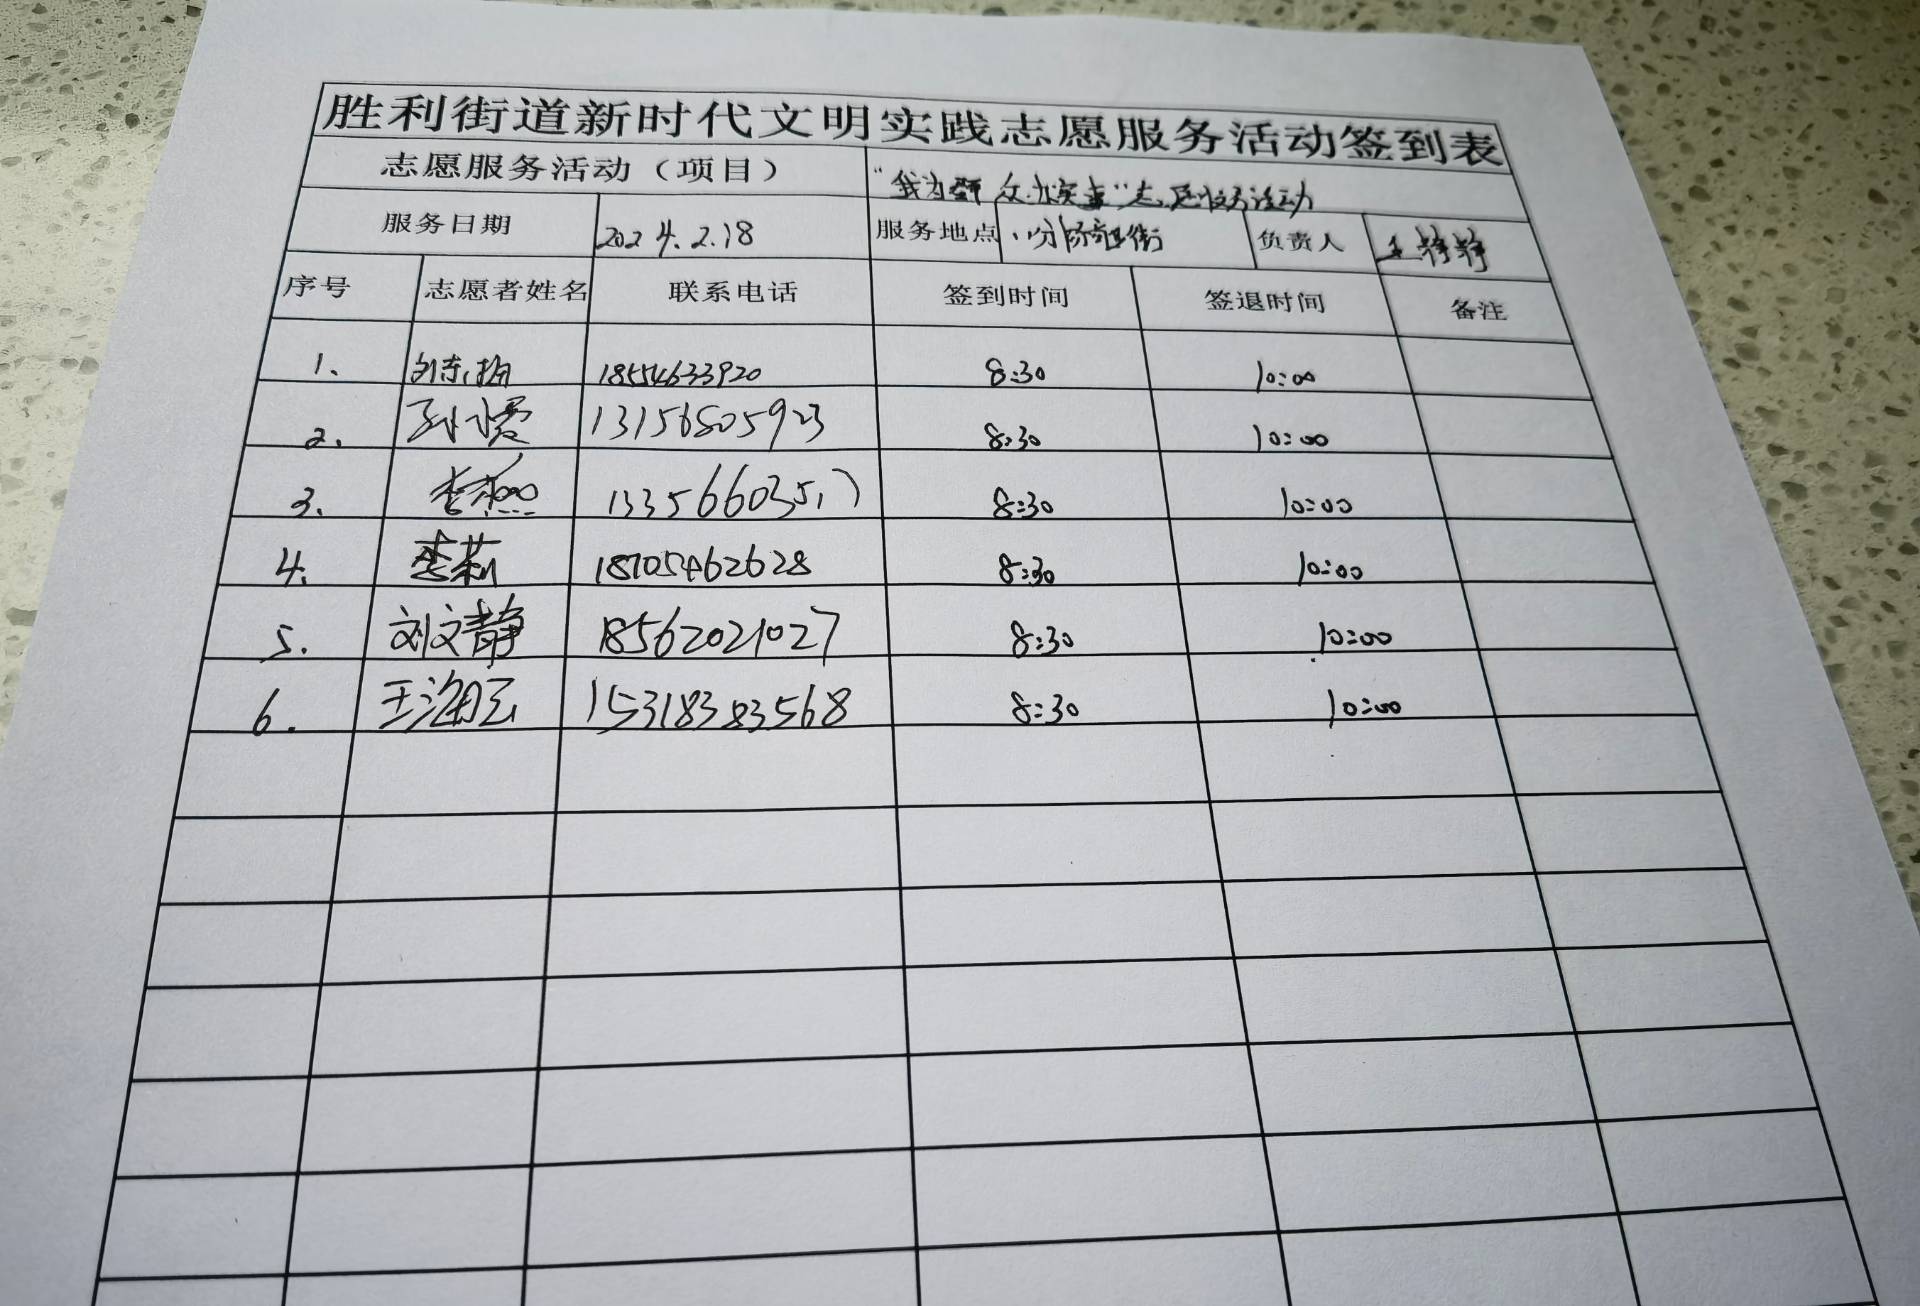 胜利街道新时代文明实践志愿服务活动签到表
志愿服务活动（项目） "我为群众办实事"志愿服务活动
服务日期 2024.2.18 服务地点 负责人 王静静
序号 志愿者姓名 联系电话 签到时间 签退时间 备注
1、 18554633920 8:30 10:00
2、 13156805923 8:30 10:00
3、 李燕 13356603517 8:30 10:00
4、 李莉 18705462628 8:30 10:00
5. 刘文静 18562021027 8:30 10:00
6. 15318383568 8:30 10:00